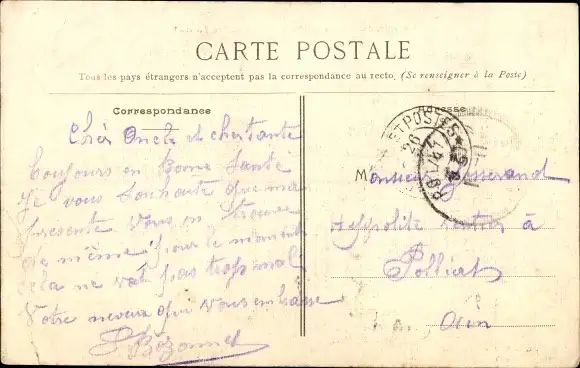 CARTE POSTALE
Tous les pays étrangers n'acceptent pas la correspondance au recto. (Se renseigner à la Poste)
Correspondance
Adresse
Chèr Oncle et cher tante
toujours en bonne santé
Je vous souhaite que ma
présente vous en trouve
de même pour le moment
cela ne vat pas trop mal
Votre neveux qui vous embrasse
Monsieur Josserand
Hyppolite rentier à
Polliat
Ain